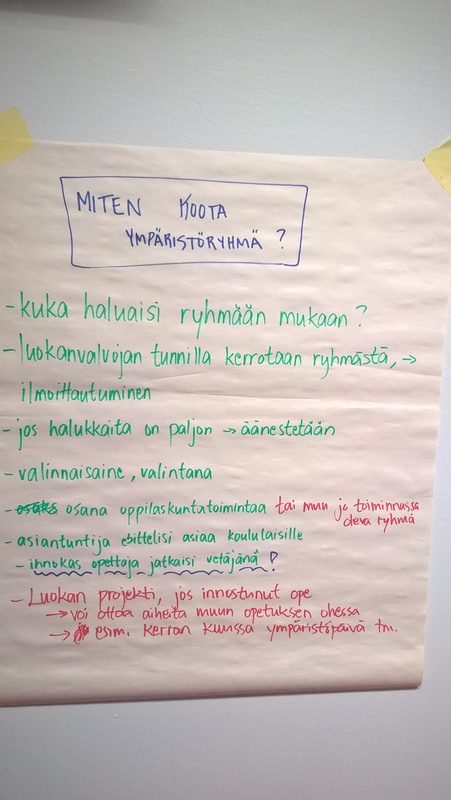 MITEN KOOTA
YMPÄRISTÖRYHMÄ ?
- kuka haluaisi ryhmään mukaan ?
- luokanvalvojan tunnilla kerrotaan ryhmästä, →
ilmoittautuminen
- jos halukkaita on paljon → äänestetään
- valinnaisaine, valintana
- osana oppilaskuntatoimintaa tai muu jo toiminnassa
oleva ryhmä
- asiantuntija esittelisi asiaa koululaisille
- innokas opettaja jatkaisi vetäjänä !
- Luokan projekti, jos innostunut ope
→ voi ottaa aiheita muun opetuksen ohessa
→ esim. kerran kuussa ympäristöpäivä tm.